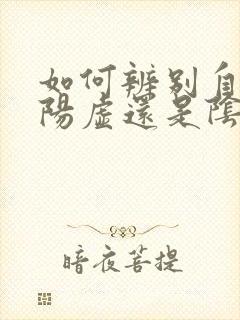 如何辨别自
陽虛還是陰
暗夜菩提